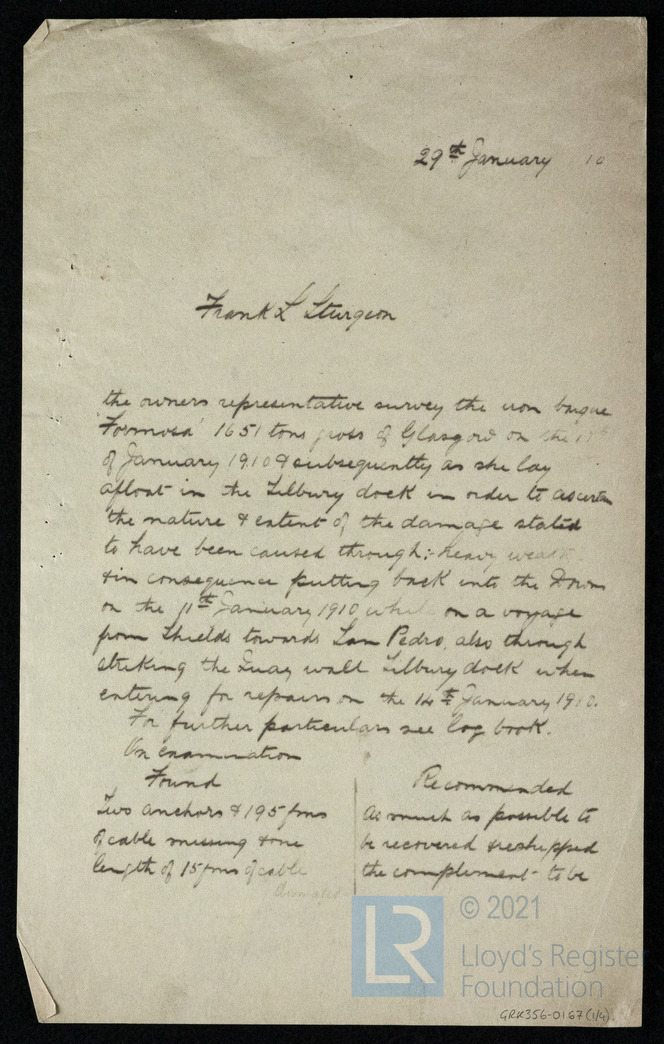 29th January 10
Frank L Sturgeon
the owners representative survey the iron barque
'Formosa' 1651 tons gross of Glasgow on the
of January 1910 & subsequently as she lay
afloat in the Tilbury dock in order to ascertn
the nature & extent of the damage stated
to have been caused through:- heavy weath
& in consequence putting back into the Downs
on the 11th January 1910 while on a voyage
from Shields towards San Pedro, also through
striking the Quay wall Tilbury dock when
entering for repairs on the 14th January 1910.
For further particulars see log book.
On examination
Found
Two anchors & 195 fms
of cable missing & one
length of 15 fms of cable
Recommended
As much as possible to
be recovered & reshipped
the complement to be
LR
© 2021
Lloyd's Register
Foundation
GRK356-0167(1/4)